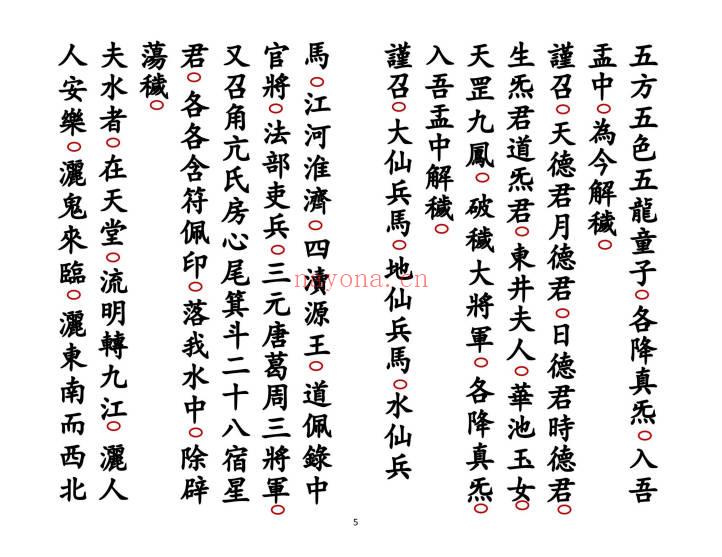 五方五色五龍童子。各降真炁。入吾
盂中。為今解穢。
謹召。天德君月德君。日德君時德君。
生炁君道炁君。東井夫人。華池玉女。
天罡九鳳。破穢大將軍。各降真炁。
入吾盂中解穢。
謹召。大仙兵馬。地仙兵馬。水仙兵
馬。江河淮濟。四瀆源王。道佩錄中
官將。法部吏兵。三元唐葛周三將軍。
又召角亢氐房心尾箕斗二十八宿星
君。各各含符佩印。落我水中。除辟
蕩穢。
夫水者。在天堂。流明轉九江。灑人
人安樂。灑鬼來臨。灑東南而西北
nayona.cn
5